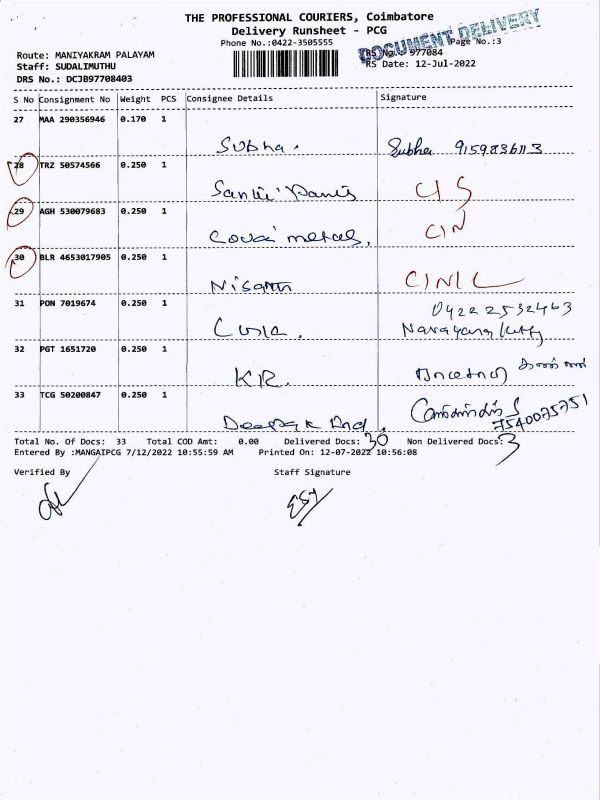 THE PROFESSIONAL COURIERS, Coimbatore
Delivery Runsheet - PCG
Phone No.:0422-3505555
DOCUMENT DELIVERY
Page No.:3
Route: MANIYAKRAM PALAYAM
RS No.: 977084
Staff: SUDALIMUTHU
RS Date: 12-Jul-2022
DRS No.: DCJB97708403
S No Consignment No Weight PCS Consignee Details Signature
27 MAA 290356946 0.170 1
Subha. Subha 9159836113
28 TRZ 50574566 0.250 1
29 AGH 530079683 0.250 1
Covai metals, CIN
30 BLR 4653017905 0.250 1
Nisanth CINL
31 PON 7019674 0.250 1
04222532463
Narayana Kutty
32 PGT 1651720 0.250 1
KR.
33 TCG 50200847 0.250 1
Deepak
7540075751
Total No. Of Docs: 33 Total COD Amt: 0.00 Delivered Docs: 30 Non Delivered Docs: 3
Entered By :MANGAIPCG 7/12/2022 10:55:59 AM Printed On: 12-07-2022 10:56:08
Verified By Staff Signature